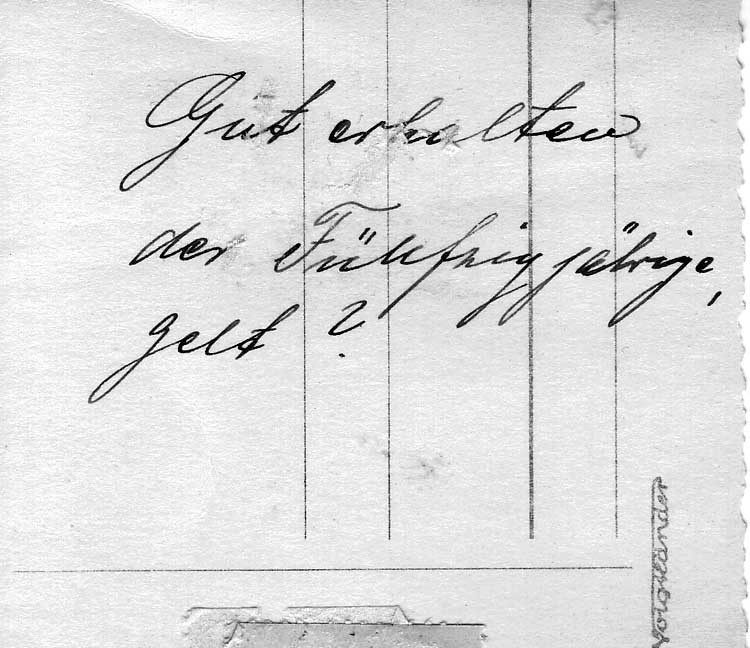 Gut erhalten
der Fünfzigjährige,
gelt?
Voigtländer